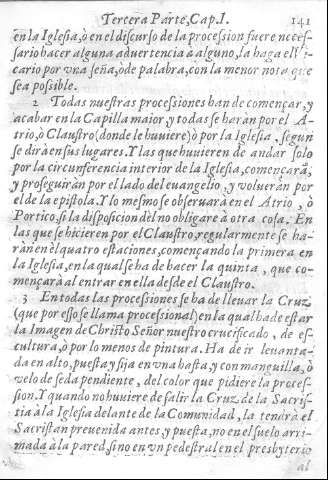 Tercera Parte, Cap. I. 141
en la Iglesia, ò en el discurso de la procession fuere neces-
sario hacer alguna advertencia à alguno, la haga el Vi-
cario por vna seña, ò de palabra, con la menor nota que
sea possible.
2 Todas nuestras processiones han de començar, y
acabar en la Capilla maior, y todas se haràn por el A-
trio, ò Claustro (donde le huuiere) ò por la Iglesia, segun
se dirà en sus lugares. Y las que huuieren de andar solo
por la circunferencia interior de la Iglesia, començarà,
y proseguiràn por el lado del euangelio, y volueràn por
el de la epistola. Y lo mesmo se obseruarà en el Atrio, ò
Portico, si la disposicion dèl no obligare à otra cosa. En
las que se hicieren por el Claustro, regularmente se ha-
ràn en èl quatro estaciones, començando la primera en
la Iglesia, en la qual se ha de hacer la quinta, que co-
mençarà al entrar en ella desde el Claustro.
3 En todas las processiones se ha de lleuar la Cruz
(que por esso se llama processional) en la qual ha de estar
la Imagen de Christo Señor nuestro crucificado, de es-
cultura, ò por lo menos de pintura. Ha de ir leuanta-
da en alto, puesta y fija en vna hasta, y con manguilla, ò
velo de seda pendiente, del color que pidiere la proces-
sion. Y quando no huuiere de salir la Cruz de la Sacris-
tia à la Iglesia delante de la Comunidad, la tendrà el
Sacristan preuenida antes, y puesta, no en el suelo arri-
mada à la pared, sino en vn pedestral en el presbyterio
al